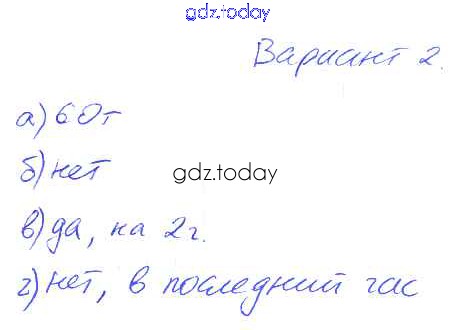 gdz.today
Вариант 2.
а) 60т
б) нет
gdz.today
в) да, на 2г.
г) нет, в последний час